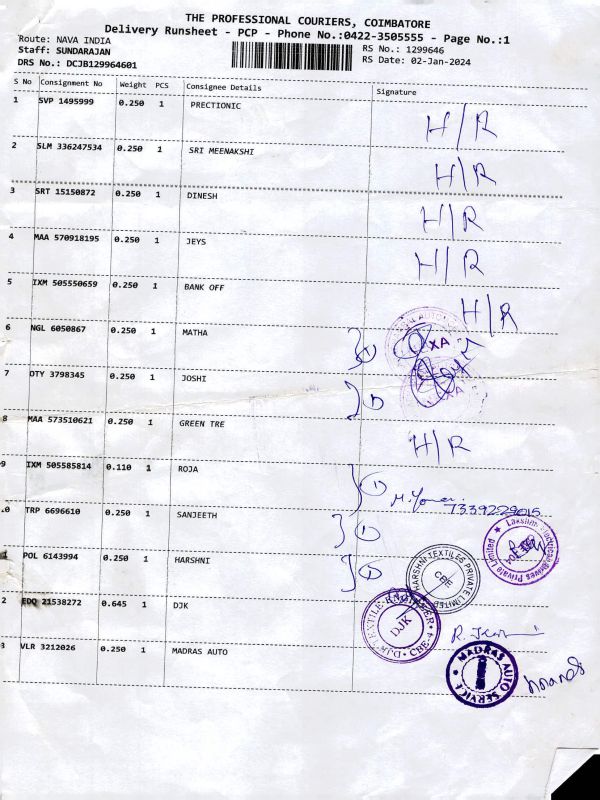 THE PROFESSIONAL COURIERS, COIMBATORE
Delivery Runsheet - PCP - Phone No.:0422-3505555 - Page No.:1
Route: NAVA INDIA
RS No.: 1299646
Staff: SUNDARAJAN
RS Date: 02-Jan-2024
DRS No.: DCJB129964601
S No Consignment No Weight PCS Consignee Details Signature
1 SVP 1495999 0.250 1 PRECTIONIC H/R
2 SLM 336247534 0.250 1 SRI MEENAKSHI H/R
3 SRT 15150872 0.250 1 DINESH H/R
4 MAA 570918195 0.250 1 JEYS H/R
5 IXM 505550659 0.250 1 BANK OFF H/R
6 NGL 6050867 0.250 1 MATHA 1
7 OTY 3798345 0.250 1 JOSHI 1
8 MAA 573510621 0.250 1 GREEN TRE H/R
9 IXM 505585814 0.110 1 ROJA 1
7339229015
.0 TRP 6696610 0.250 1 SANJEETH 1
1 POL 6143994 0.250 1 HARSHNI 1
HARSHNI TEXTILES PRIVATE LIMITED
CBE
2 EDQ 21538272 0.645 1 DJK
DJK
3 VLR 3212026 0.250 1 MADRAS AUTO
MADRAS AUTO SERVICE